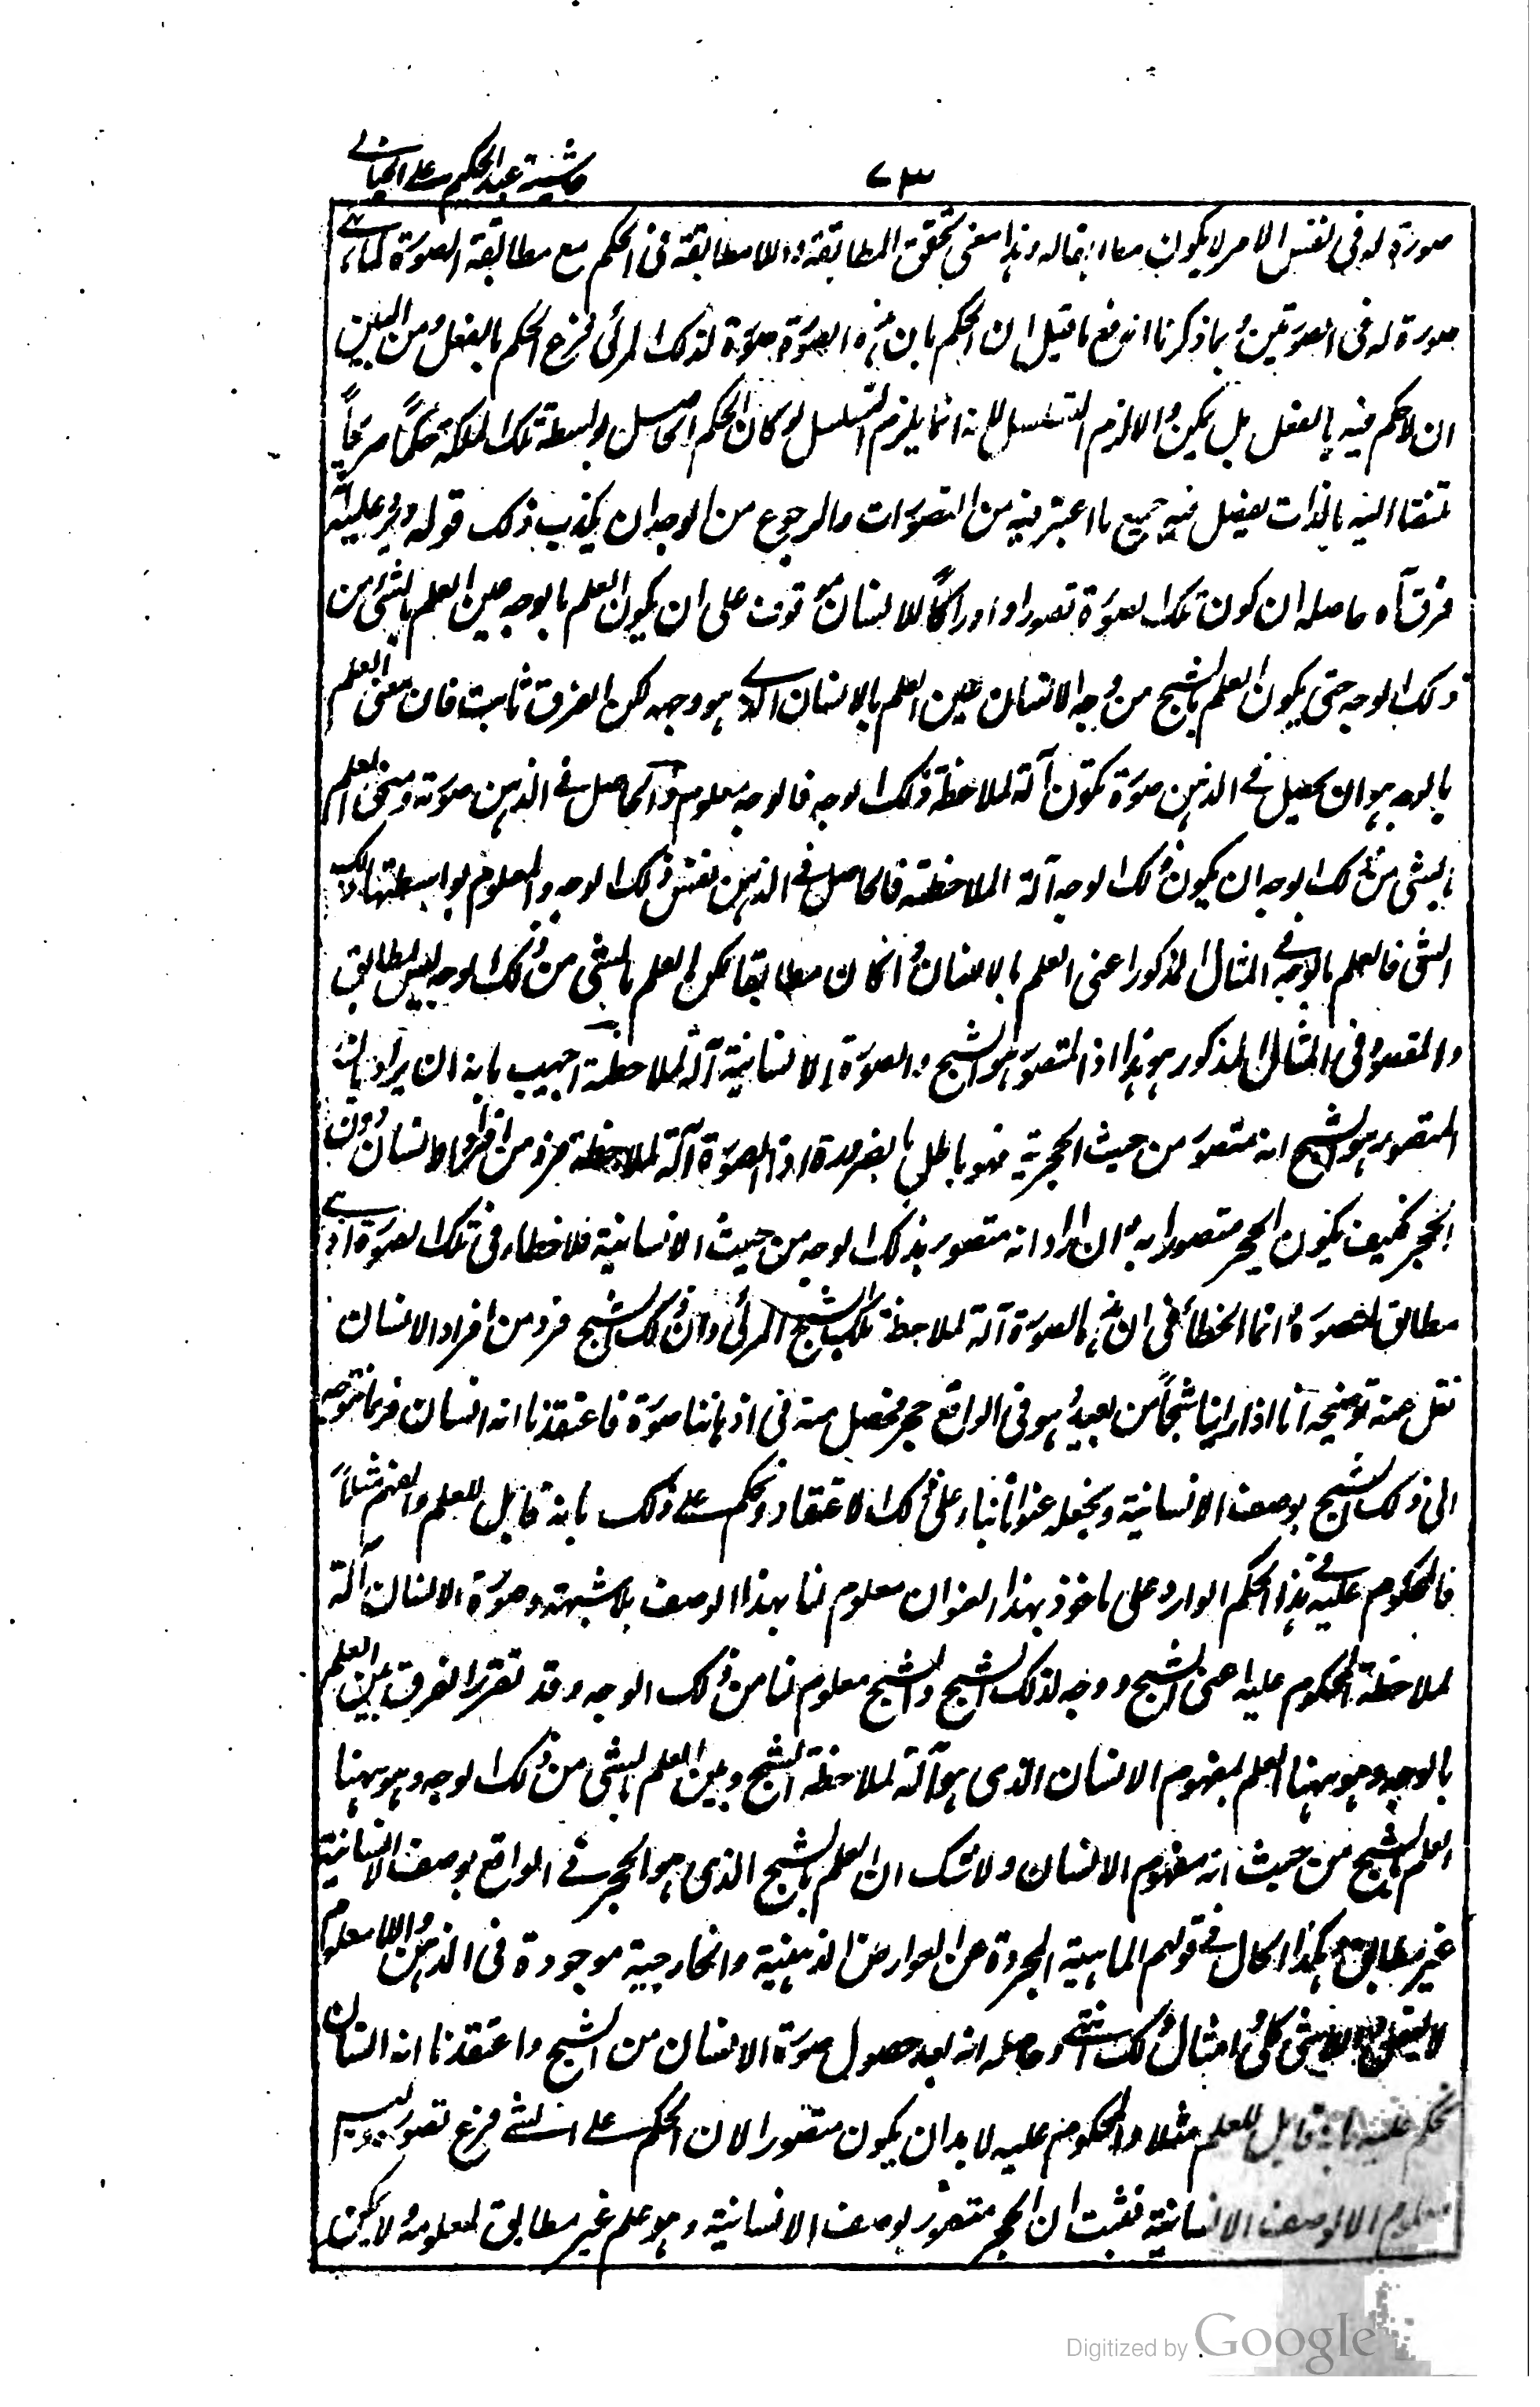 ٧٣
حاشية عبد الحكيم على الخيالي
صورة له في نفس الامر لا يكون وهذا معنى تحقق المطابقة واللامطابقة في الحكم مع مطابقة الصورة لما هي
صورة له في الصورتين وبما ذكرنا اندفع ما قيل ان الحكم بان هذه الصورة صورة لذلك المرئي فرع الحكم بالفعل ومن البين
ان لا حكم فيه بالفعل بل يمكن والا لزم التسلسل لانه انما يلزم التسلسل لو كان الحكم الحاصل بواسطة تلك الملكة حكماً صريحاً
ملتفتا اليه بالذات يفصل فيه جميع ما اعتبر فيه من التصورات والرجوع من الوجدان يكذب ذلك قوله ويرد عليه انه
فرق آه حاصله ان كون تلك الصورة تصورا وادراكاً للانسان موقوف على ان يكون العلم بالوجه عين العلم بالشئ من
ذلك الوجه حتى يكون العلم بالشبح من وجه الانسان عين العلم بالانسان الذي هو وجهه لكن الفرق ثابت فان معنى العلم
بالوجه هو ان يحصل في الذهن صورة تكون آلة لملاحظة ذلك الوجه فالوجه معلوم والحاصل في الذهن صورته ومعنى العلم
بالشئ من ذلك الوجه ان يكون ذلك الوجه آلة الملاحظته فالحاصل في الذهن نفس ذلك الوجه والمعلوم بواسطتها ذلك
الشئ فالعلم بالوجه في المثال المذكور اعنى العلم بالانسان وان كان مطابقا لكن العلم بالشئ من ذلك الوجه ليس بمطابق
والمقصود في المثال المذكور هو هذا اذ المتصور هو الشبح والصورة الانسانية آلة لملاحظته اجيب بانه ان يراد بان
المتصور هو الشبح انه متصور من حيث الحجرية فهو باطل بالضرورة اذ الصورة آلة لملاحظة فرد من افراد الانسان دون
الحجر فكيف يكون الحجر متصورا به وان اراد انه متصور بذلك الوجه من حيث الانسانية فلا خطاء في تلك الصورة اذ هي
مطابق لتصوره انما الخطأ في ان هذه الصورة آلة لملاحظة ذلك الشبح المرئي وان ذلك الشبح فرد من افراد الانسان
نقل عنه توضيحه انا اذا راينا شبحاً من بعيد هو في الواقع حجر فحصل منه في اذهاننا صورة فاعتقدنا انه انسان فربما نتوجه
الى ذلك الشبح بوصف الانسانية ونجعله عنوانا بناء على ذلك الاعتقاد ونحكم على ذلك بانه قابل للعلم والفهم مثلاً
فالمحكوم عليه في هذا الحكم الوارد على ماخوذ بهذا العنوان معلوم لنا بهذا الوصف بلا شبهة وصورة الانسان آلة
لملاحظة المحكوم عليه اعنى الشبح ووجه لذلك الشبح والشبح معلوم لنا من ذلك الوجه وقد تقرر الفرق بين العلم
بالوجه وهو ههنا العلم بمفهوم الانسان الذى هو آلة لملاحظة الشبح وبين العلم بالشئ من ذلك الوجه وهو ههنا
العلم بالشبح من حيث انه مفهوم الانسان ولا شك ان العلم بالشبح الذى هو الحجر في الواقع بوصف الانسانية
غير مطابق وهكذا الحال في قولهم الماهية المجردة عن العوارض الذهنية والخارجية موجودة في الذهن واللا معلوم
لا يعقل واللاشئ كلى وامثال ذلك انتهى وحاصله انه بعد حصول صورة الانسان من الشبح واعتقدنا انه انسان
نحكم عليه بانه قابل للعلم مثلا والمحكوم عليه لا بد ان يكون متصورا لان الحكم على الشئ فرع تصوره وليس
معلوم الا بوصف الانسانية فثبت ان الحجر متصور بوصف الانسانية وهو علم غير مطابق لمعلومه لا يمكن
Digitized by Google